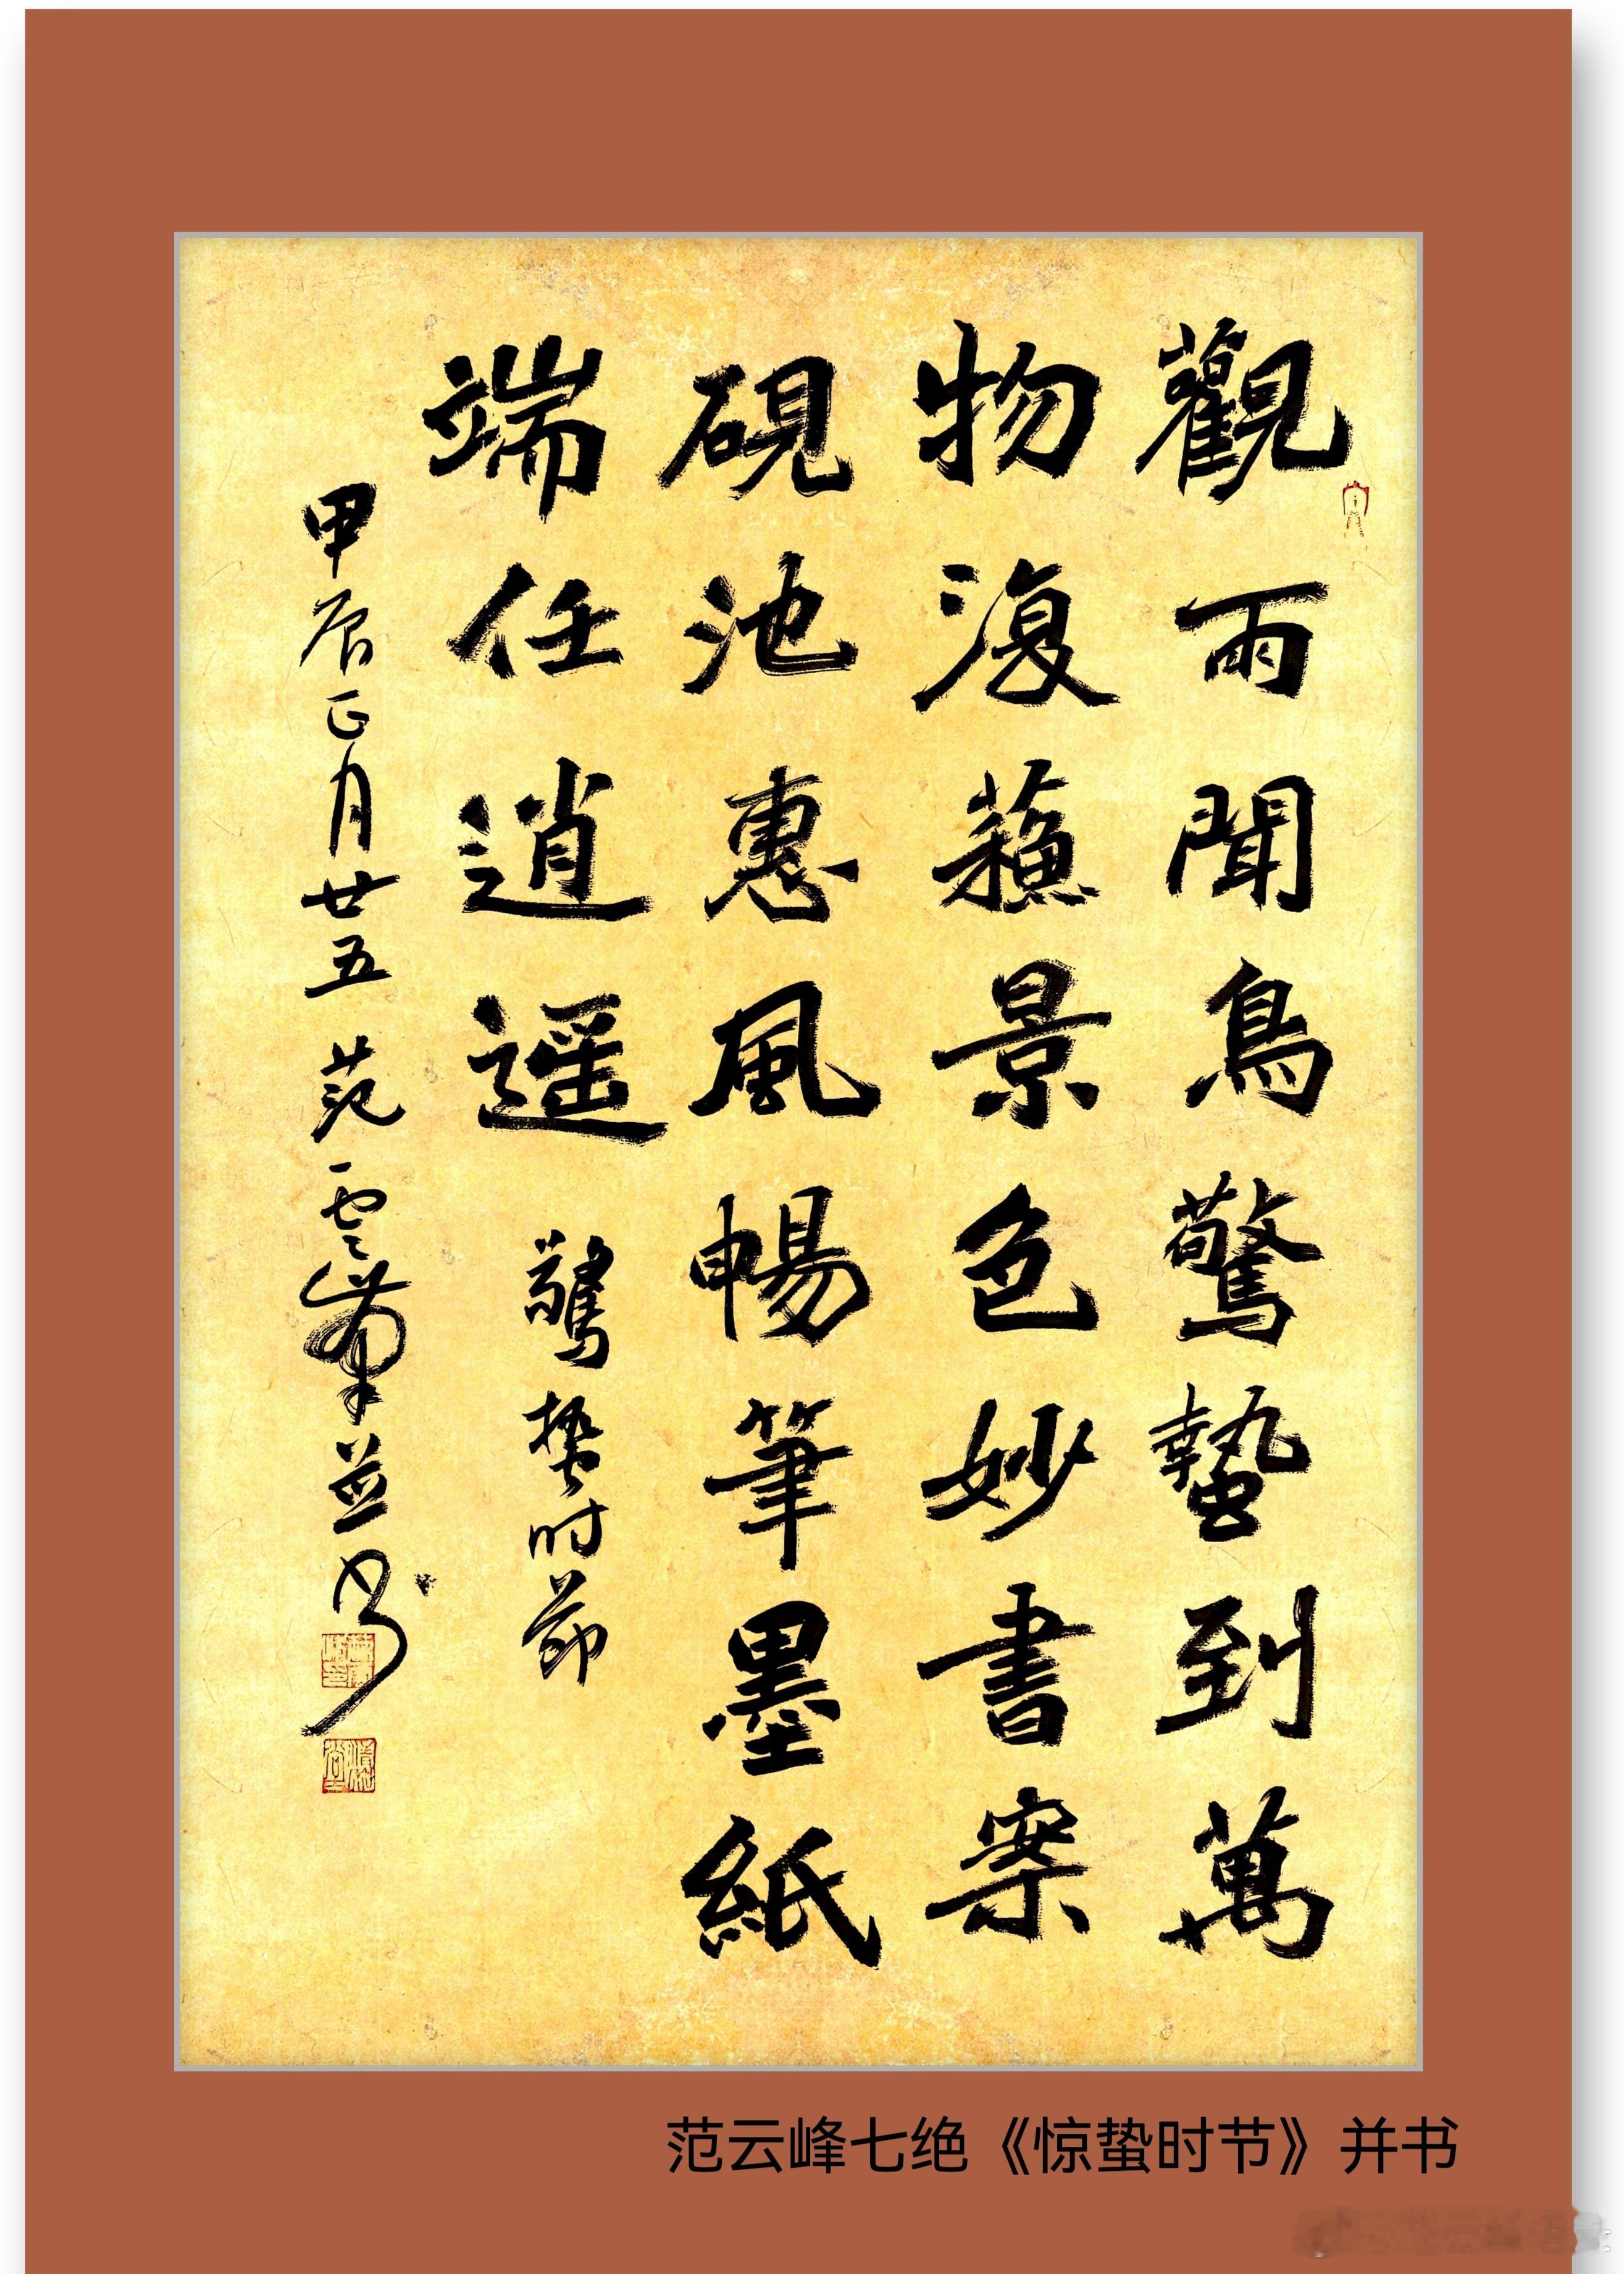 觀雨聞鳥驚蟄到萬
物復蘓景色妙書案
硯池惠風暢筆墨紙
端任逍遥
驚蛰时节
甲辰正月廿五范雲峯并书
范云峰七绝《惊蛰时节》并书